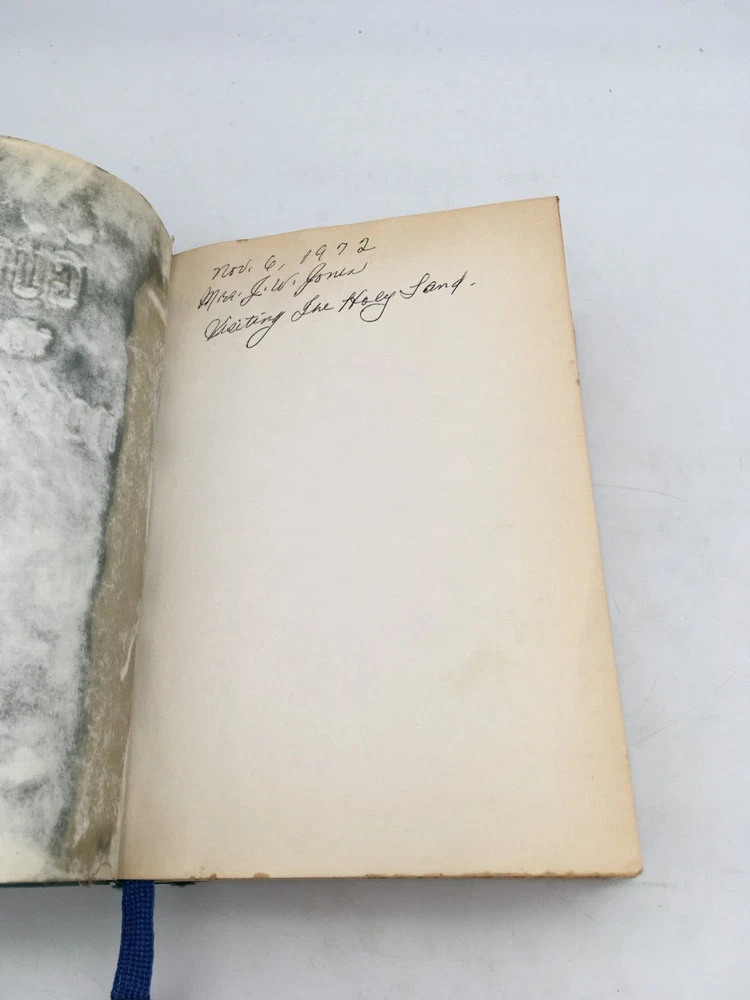 Nov. 6, 1972
Mrs. J. W. Jones
Visiting The Holy Land.